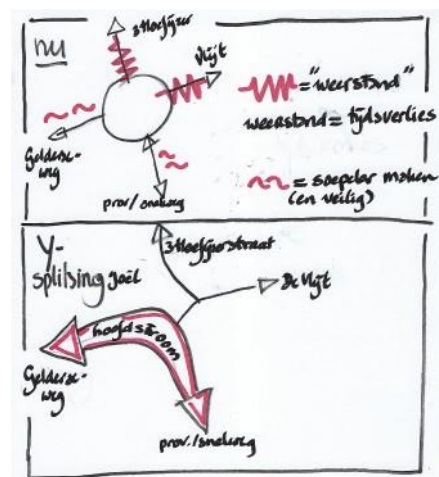 nu
3Hoefijzer
Vlijt
= "weerstand"
weerstand = tijdsverlies
Gelderse-
weg
prov/snelweg
= soepeler maken
(en veilig)
Y-
splitsing Joël
3Hoefijzerstraat
De Vlijt
hoofdstroom
Gelderse-
weg
prov./snelweg